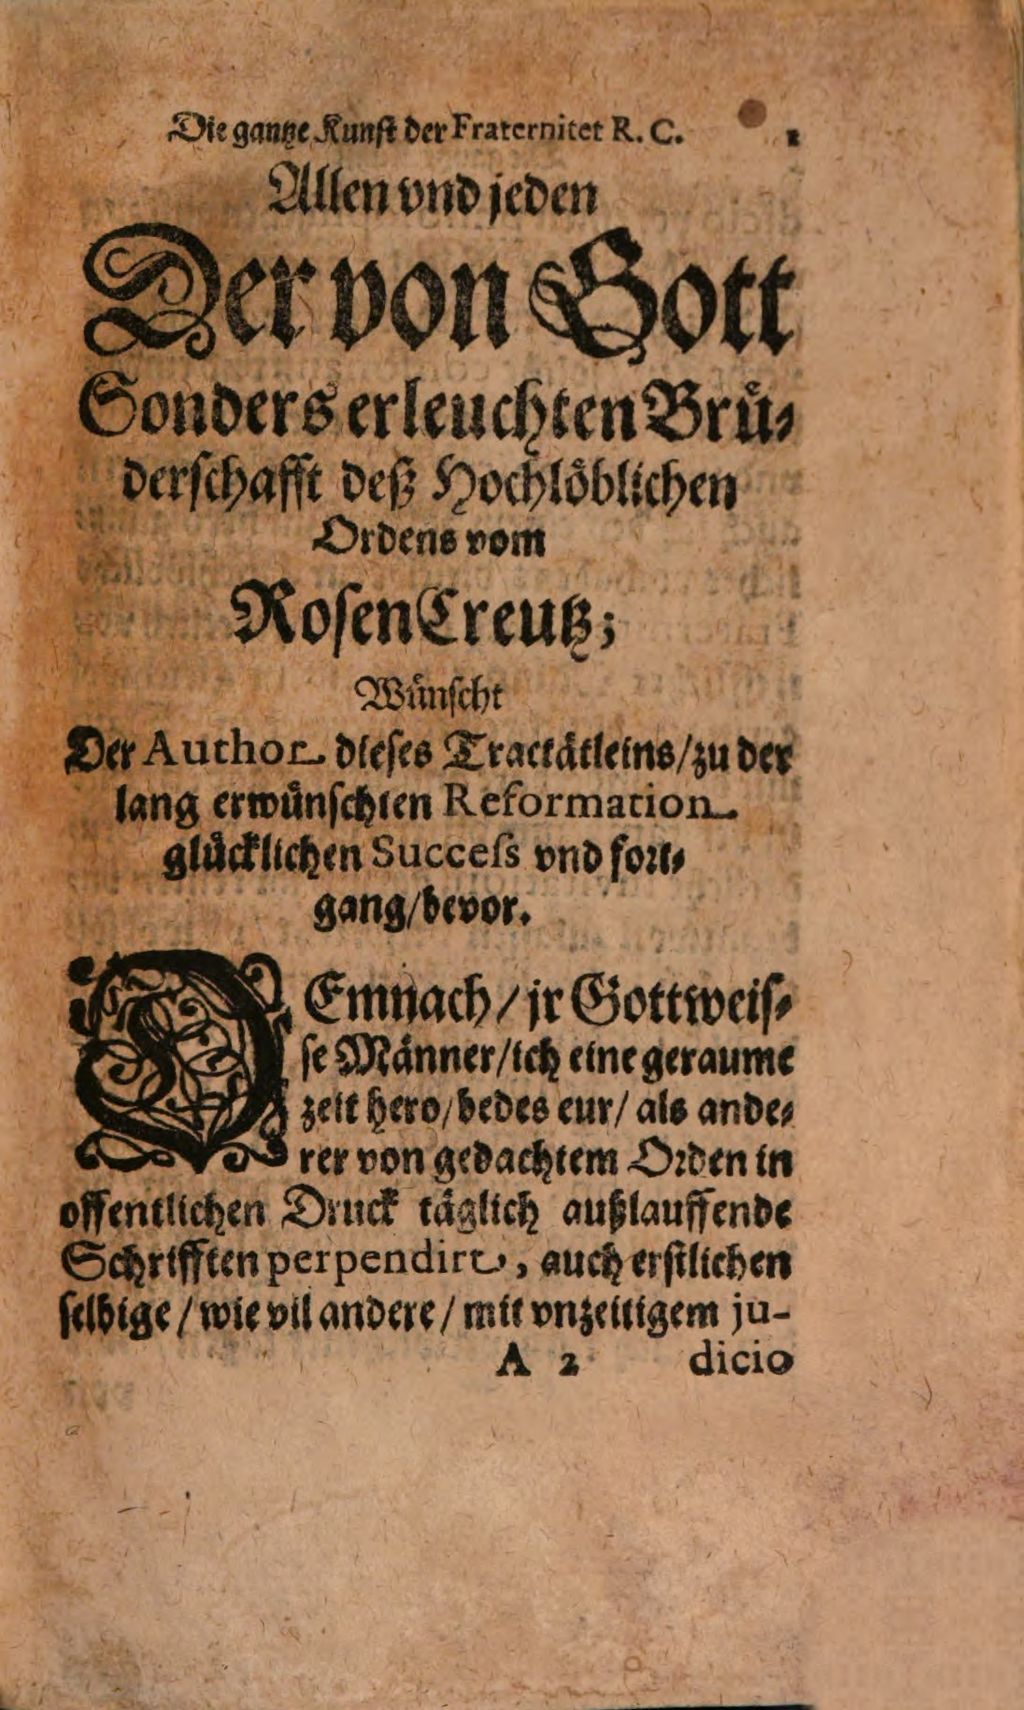 Die gantze Kunst der Fraternitet R. C.
Allen vnd jeden
Der von Gott
Sonders erleuchten Brü⸗
derschafft deß Hochlöblichen
Ordens vom
RosenCreutz;
Wünscht
Der Author dieses Tractätleins/zu der
lang erwünschten Reformation
glücklichen Success vnd fort⸗
gang/bevor.
DEmnach/jr Gottweis⸗
se Männer/ich eine geraume
zeit hero/bedes eur/ als ande⸗
rer von gedachtem Orden in
offentlichen Druck täglich außlauffende
Schrifften perpendirt, auch erstlichen
selbige/wie vil andere/mit vnzeitigem ju-
A 2 dicio